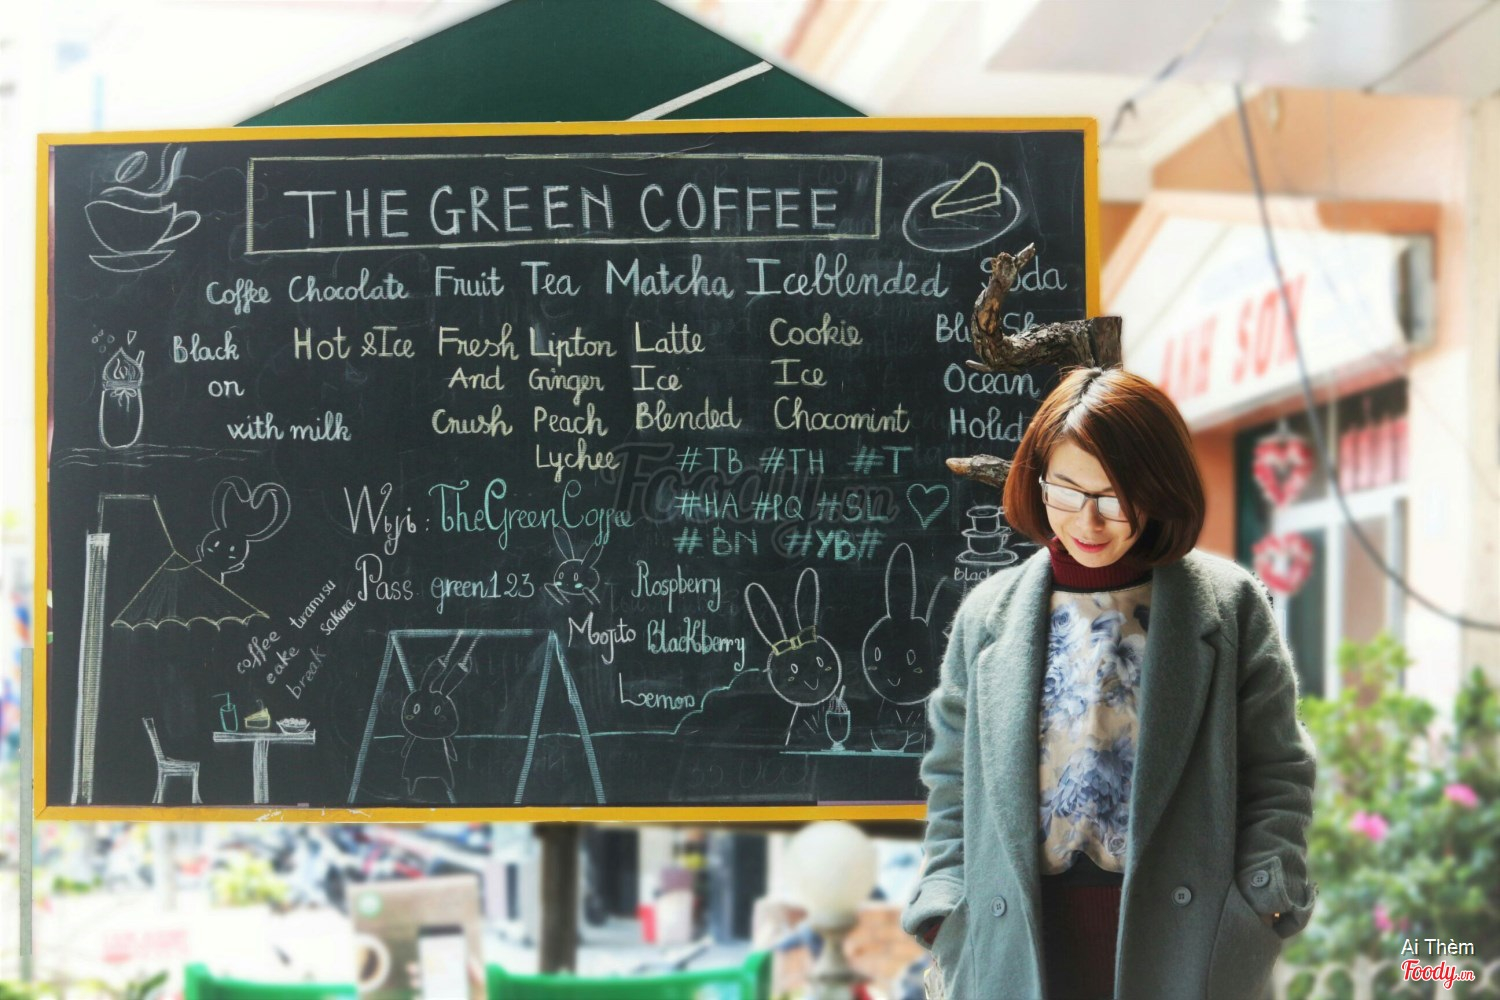 THE GREEN COFFEE
Coffee Chocolate Fruit Tea Matcha Iceblended Soda
Black Hot & Ice Fresh Lipton Latte Cookie
on And Ginger Ice Ice Ocean
with milk Crush Peach Blended Chocomint
Lychee #TB #TH #T
Wifi: TheGreenCoffee #HA #PQ #SL
#BN #YB#
Pass green123 Rospberry Black
Mojito BlacKberry
Lemon
coffee tiramisu
cake sakura
break
ANH SƠN
Foody.vn
Ai Thèm
Foody.vn